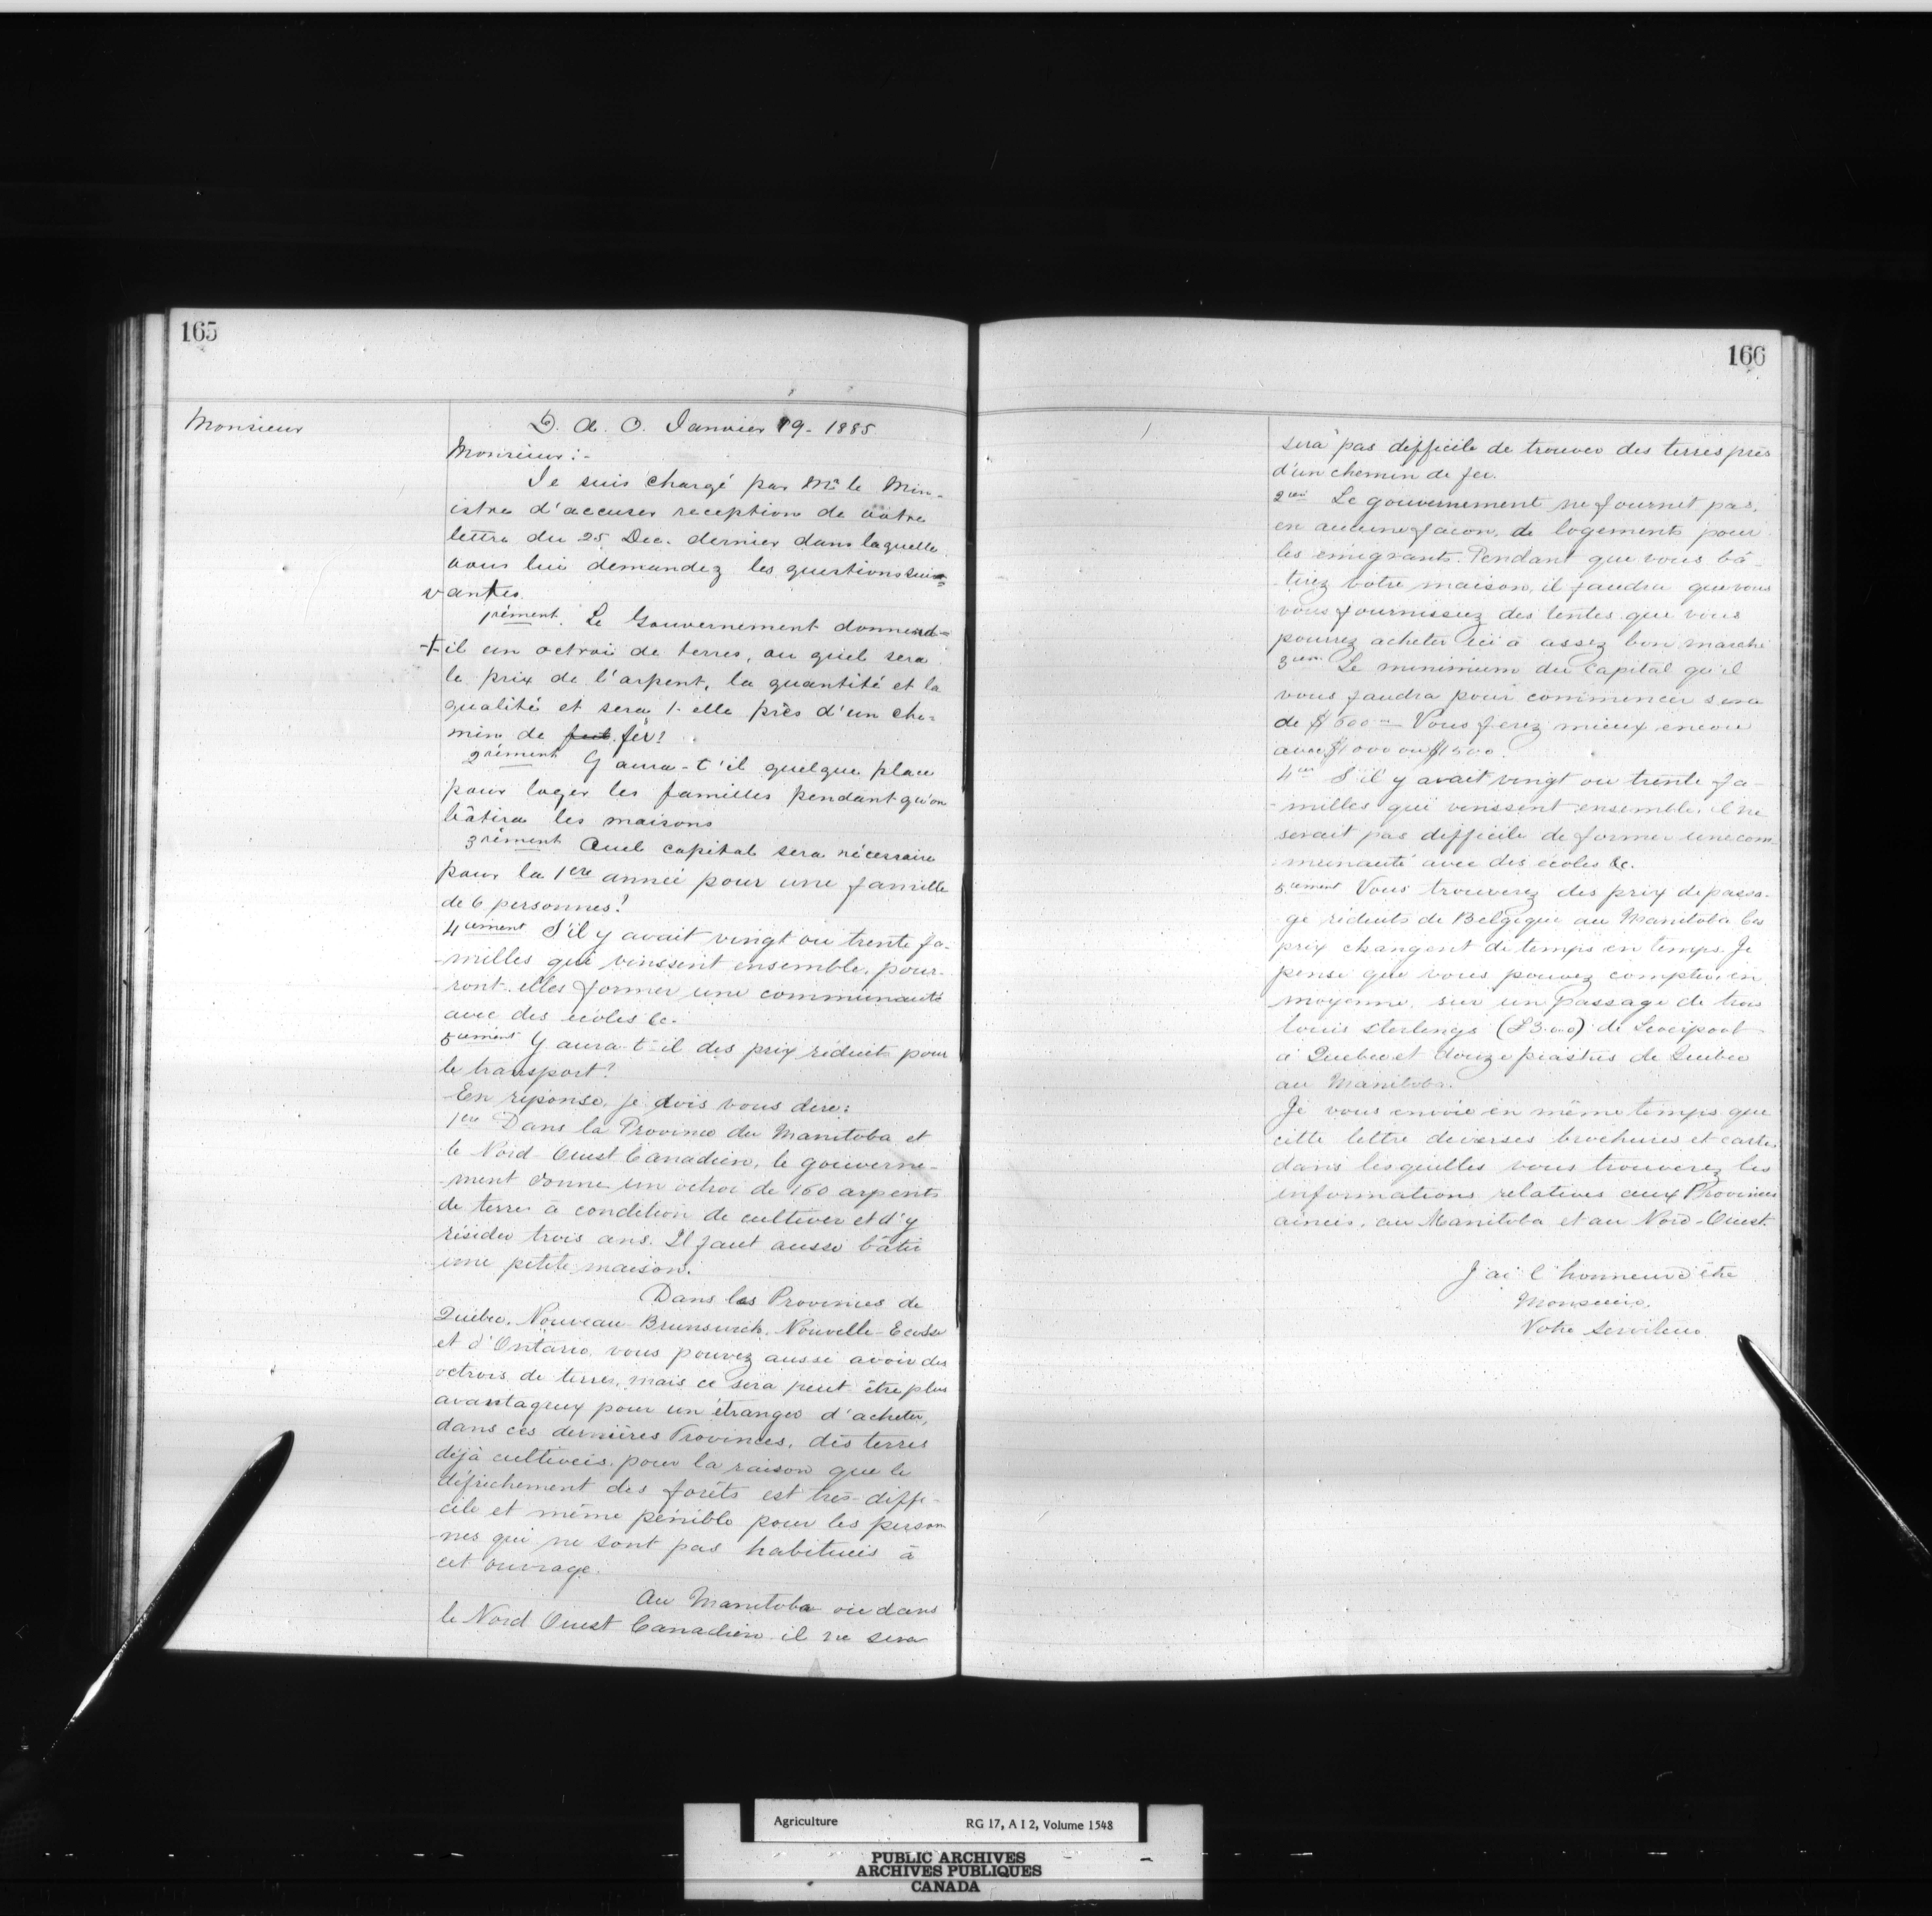 165
Monsieur
D. A. O. Janvier 19 - 1885
Monsieur :-
Je suis chargé par Mr le Min-
istre d'accuser reception de votre
lettre du 25 Dec. dernier dans laquelle
vous lui demandez les questions sui-
vantes.
1rément. Le Gouvernement donnerat-
il un octroi de terres, ou quel sera
le prix de l'arpent, la quantité et la
qualité et sera t-elle près d'un che-
min de fer?
2rément Y aura-t'il quelque place
pour loger les familles pendant qu'on
bâtira les maisons
3rément Quel capital sera nécessaire
pour la 1ere année pour une famille
de 6 personnes?
4iement S'il y avait vingt ou trente fa-
-milles qui vinssent ensemble, pour-
-ront-elles former une communauté
avec des écoles &c.
5iement Y aura-t-il des prix réduits pour
le transport?
En réponse, je dois vous dire:
1ere Dans la Province du Manitoba et
le Nord-Ouest Canadien, le gouverne-
-ment donne un octroi de 160 arpents
de terres à condition de cultiver et d'y
résider trois ans. Il faut aussi bâtir
une petite maison.
Dans les Provinces de
Québec, Nouveau-Brunswick, Nouvelle-Ecosse
et d'Ontario, vous pouvez aussi avoir des
octrois de terres, mais ce sera peut être plus
avantageux pour un étranger d'acheter,
dans ces dernières Provinces, des terres
déjà cultivées, pour la raison que le
défrichement des forêts est très-diffi-
cile et même pénible pour les person
-nes qui ne sont pas habitués à
cet ouvrage.
Au Manitoba ou dans
le Nord Ouest Canadien il ne sera
166
sera pas difficile de trouver des terres près
d'un chemin de fer.
Le gouvernement ne fournit pas,
en aucune façon, de logements pour
les émigrants. Pendant que vous bâ-
-tirez votre maison, il faudra que vous
vous fournissiez des tentes que vous
pourrez acheter ici à assez bon marché
Le minimum du capital qu'il
vous faudra pour commencer sera
de $600 Vous ferez mieux encore
avec $1000 ou $1500
S'il y avait vingt ou trente fa-
-milles qui vinssent ensemble, il ne
serait pas difficile de former une com-
-munauté avec des écoles &c.
5iement Vous trouverez des prix de passa-
-ge réduits de Belgique au Manitoba les
prix changent de temps en temps. Je
pense que vous pouvez compter, en
moyenne, sur un passage de trois
louis sterlings (£3.0.0) de Liverpool
à Quebec et douze piastres de Québec
au Manitoba.
Je vous envoie en même temps que
cette lettre diverses brochures et cartes
dans lesquelles vous trouverez les
informations relatives aux Provinces
ainées, au Manitoba et au Nord-Ouest
J'ai l'honneur d'être
Monsieur,
Votre serviteur
Agriculture RG 17, A I 2, Volume 1548
PUBLIC ARCHIVES
ARCHIVES PUBLIQUES
CANADA